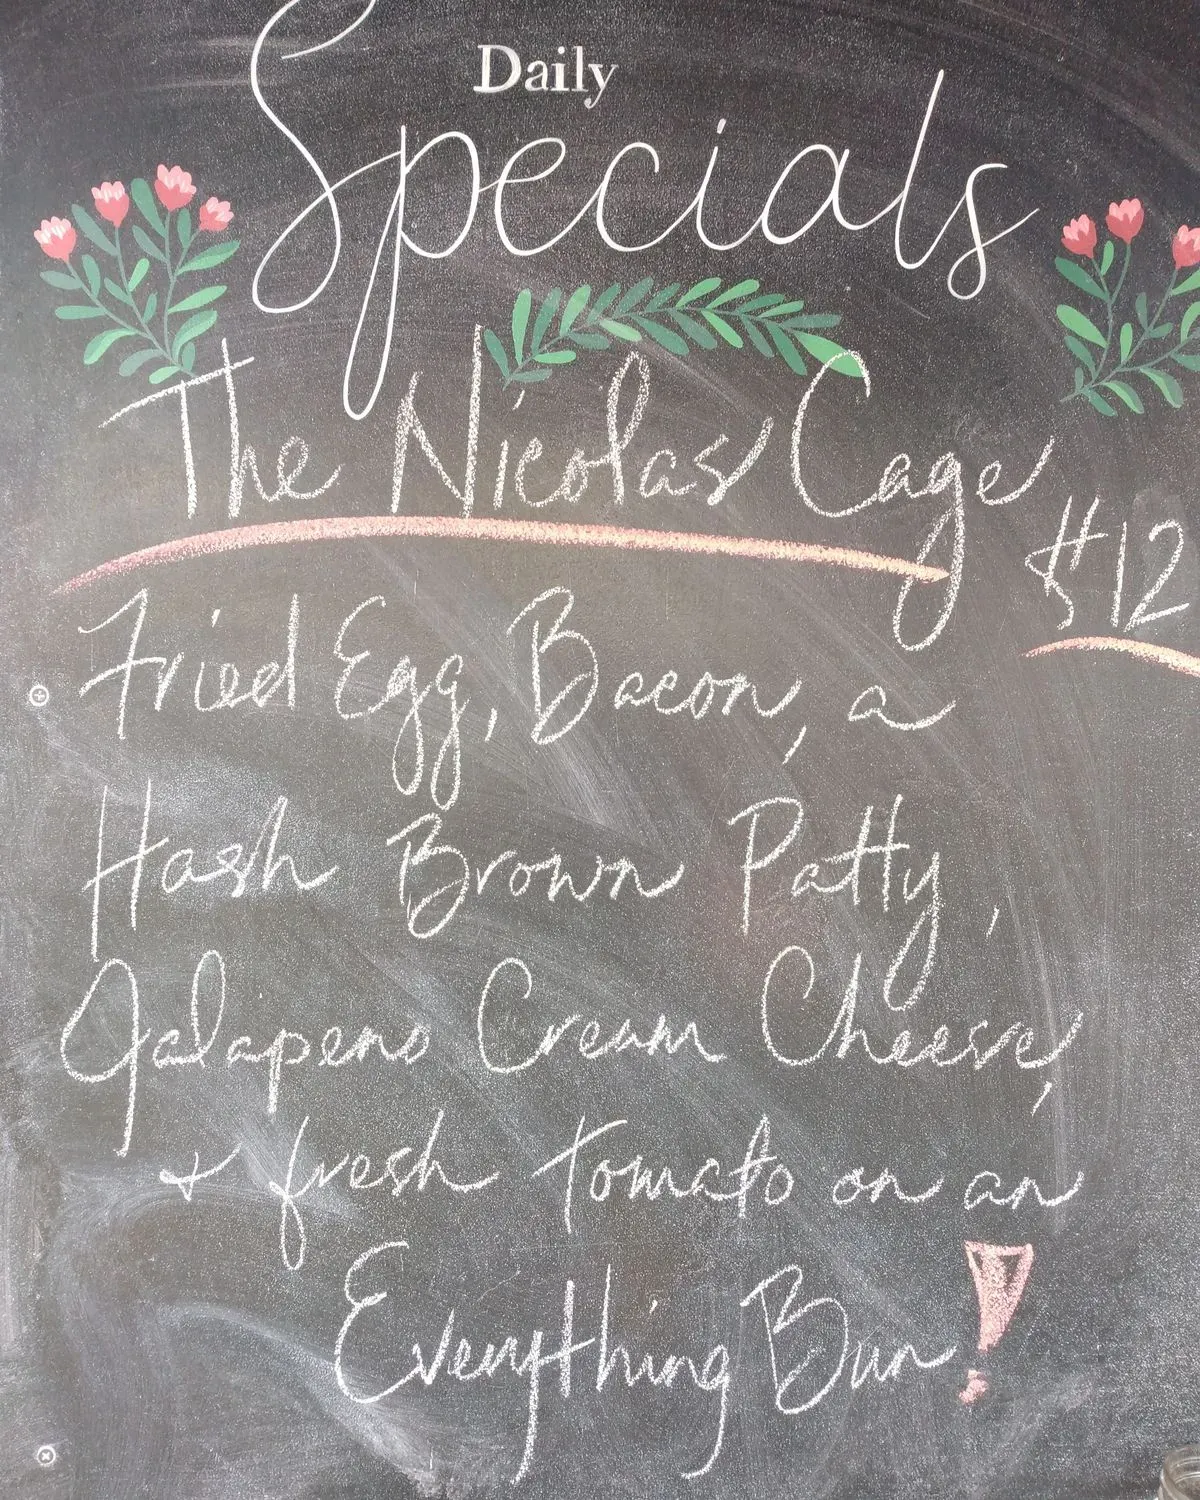 Daily
Specials
The Nicolas Cage
$12
Fried Egg, Bacon, a
Hash Brown Patty,
Jalapeno Cream Cheese,
+ fresh tomato on an
Everything Bun!